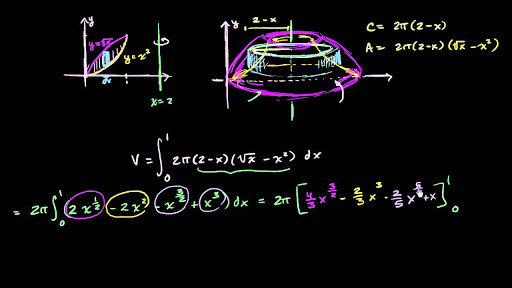 y
y=√x
y=x²
dx
x=2
y
2-x
x
C = 2π(2-x)
A = 2π(2-x)(√x - x²)
V = ∫₀¹ 2π(2-x)(√x - x²) dx
= 2π∫₀¹ (2x^{1/2} - 2x² - x^{3/2} + x³) dx = 2π[4/3 x^{3/2} - 2/3 x³ - 2/5 x^{5/2} + x]₀¹